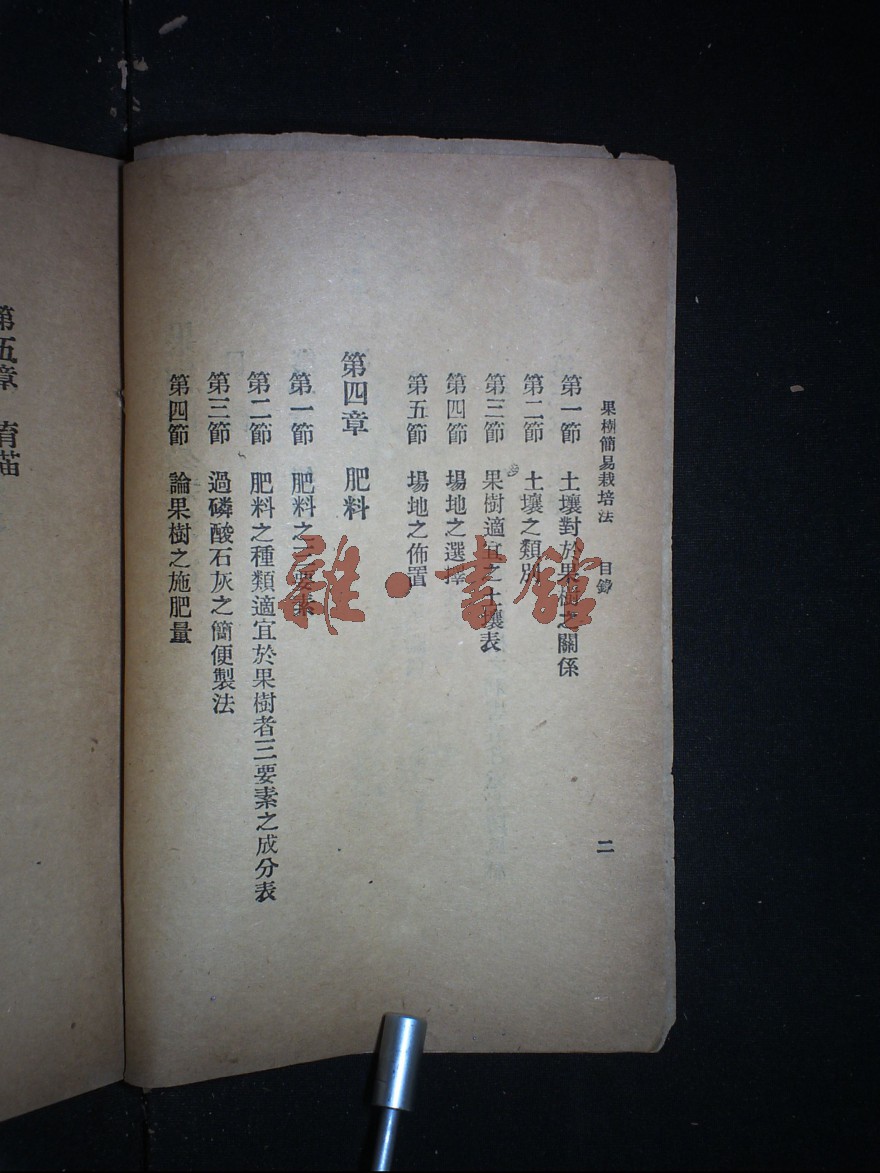 果樹簡易栽培法 目錄 二
第一節 土壤對於果樹之關係
第二節 土壤之類別
第三節 果樹適宜之土壤表
第四節 場地之選擇
第五節 場地之佈置
第四章 肥料
第一節 肥料之三要素
第二節 肥料之種類適宜於果樹者三要素之成分表
第三節 過磷酸石灰之簡便製法
第四節 論果樹之施肥量
第五章 育苗
雜·書館